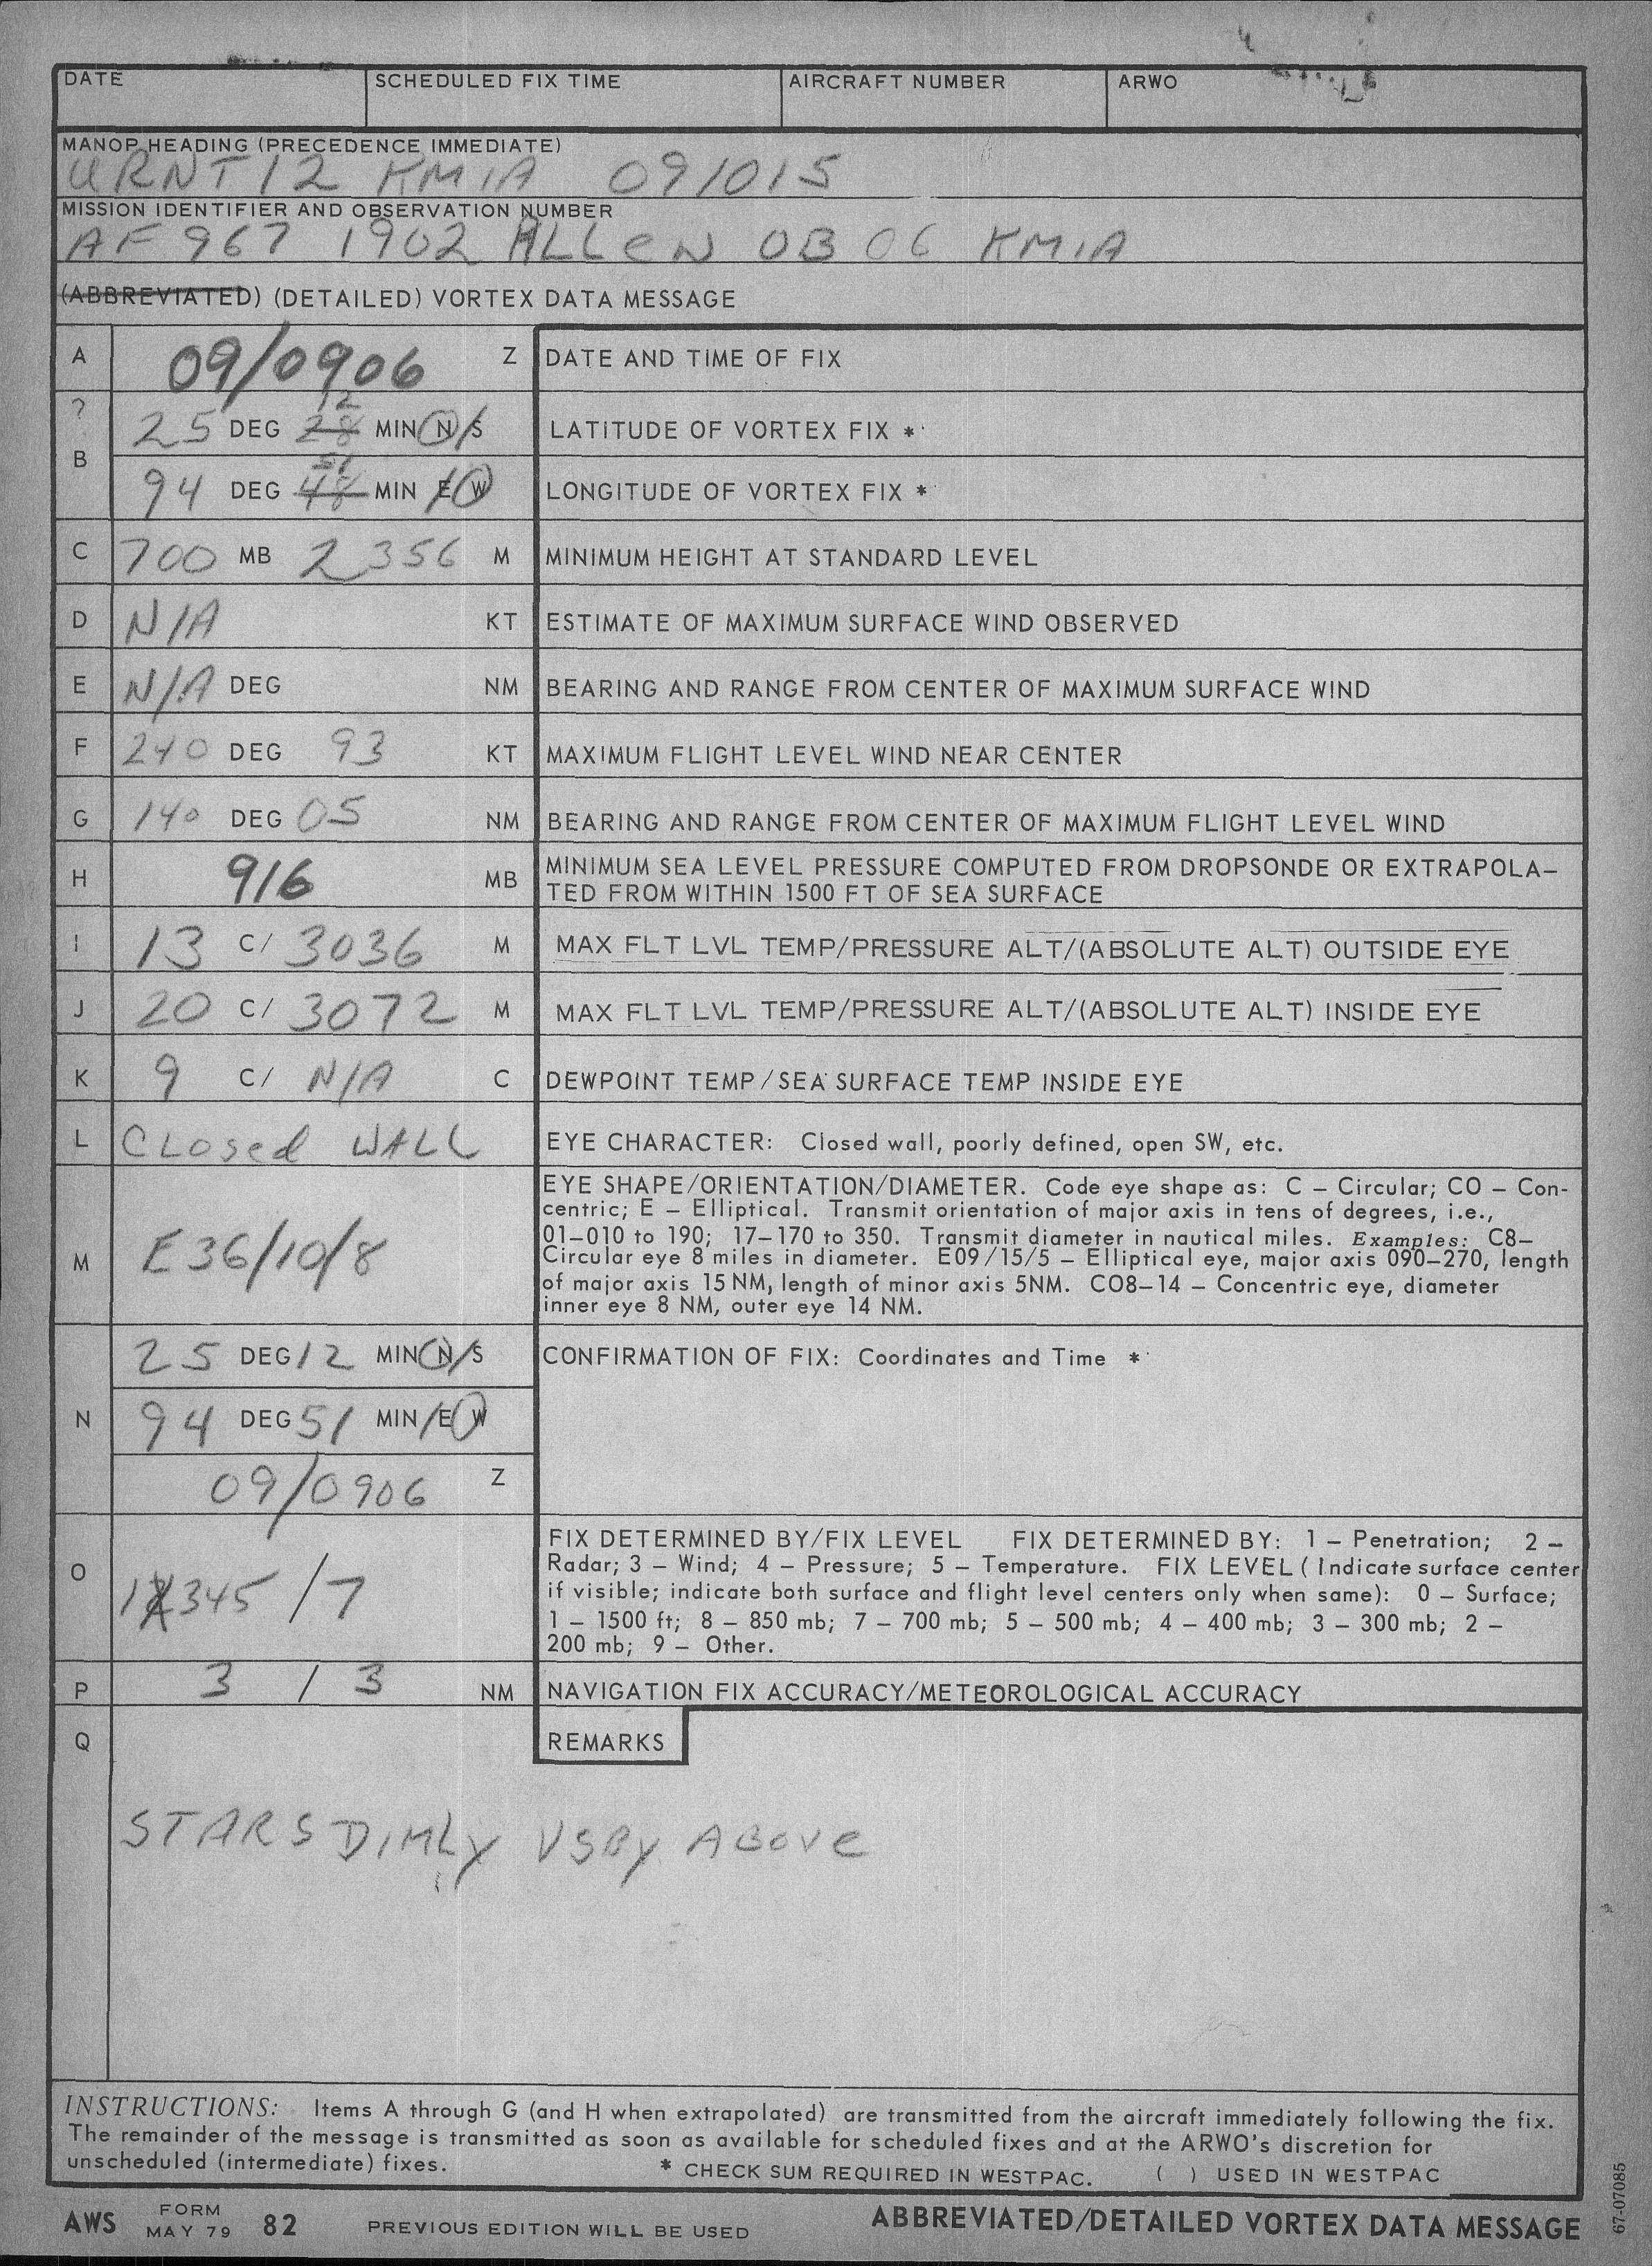 DATE SCHEDULED FIX TIME AIRCRAFT NUMBER ARWO
MANOP HEADING (PRECEDENCE IMMEDIATE)
URNT12 KMIA 091015
MISSION IDENTIFIER AND OBSERVATION NUMBER
AF967 1902 ALLEN OB 06 KMIA
(ABBREVIATED) (DETAILED) VORTEX DATA MESSAGE
A 09/0906 Z DATE AND TIME OF FIX
?
12
25 DEG 28 MIN N/S LATITUDE OF VORTEX FIX *
B
51
94 DEG 48 MIN E/W LONGITUDE OF VORTEX FIX *
C 700 MB 2356 M MINIMUM HEIGHT AT STANDARD LEVEL
D N/A KT ESTIMATE OF MAXIMUM SURFACE WIND OBSERVED
E N/A DEG NM BEARING AND RANGE FROM CENTER OF MAXIMUM SURFACE WIND
F 240 DEG 93 KT MAXIMUM FLIGHT LEVEL WIND NEAR CENTER
G 140 DEG 05 NM BEARING AND RANGE FROM CENTER OF MAXIMUM FLIGHT LEVEL WIND
H 916 MB MINIMUM SEA LEVEL PRESSURE COMPUTED FROM DROPSONDE OR EXTRAPOLA-
TED FROM WITHIN 1500 FT OF SEA SURFACE
I 13 C/ 3036 M MAX FLT LVL TEMP/PRESSURE ALT/(ABSOLUTE ALT) OUTSIDE EYE
J 20 C/ 3072 M MAX FLT LVL TEMP/PRESSURE ALT/(ABSOLUTE ALT) INSIDE EYE
K 9 C/ N/A C DEWPOINT TEMP/SEA SURFACE TEMP INSIDE EYE
L CLosed WALL EYE CHARACTER: Closed wall, poorly defined, open SW, etc.
M E36/10/8 EYE SHAPE/ORIENTATION/DIAMETER. Code eye shape as: C – Circular; CO – Con-
centric; E – Elliptical. Transmit orientation of major axis in tens of degrees, i.e.,
01–010 to 190; 17–170 to 350. Transmit diameter in nautical miles. Examples: C8–
Circular eye 8 miles in diameter. E09/15/5 – Elliptical eye, major axis 090–270, length
of major axis 15 NM, length of minor axis 5NM. CO8–14 – Concentric eye, diameter
inner eye 8 NM, outer eye 14 NM.
25 DEG 12 MIN N/S CONFIRMATION OF FIX: Coordinates and Time *
N 94 DEG 51 MIN E W
09/0906 Z
O 1X345 /7 FIX DETERMINED BY/FIX LEVEL FIX DETERMINED BY: 1 – Penetration; 2 –
Radar; 3 – Wind; 4 – Pressure; 5 – Temperature. FIX LEVEL (Indicate surface center
if visible; indicate both surface and flight level centers only when same): 0 – Surface;
1 – 1500 ft; 8 – 850 mb; 7 – 700 mb; 5 – 500 mb; 4 – 400 mb; 3 – 300 mb; 2 –
200 mb; 9 – Other.
P 3 / 3 NM NAVIGATION FIX ACCURACY/METEOROLOGICAL ACCURACY
Q REMARKS
STARS DIMLY VSBY ABOVE
INSTRUCTIONS: Items A through G (and H when extrapolated) are transmitted from the aircraft immediately following the fix.
The remainder of the message is transmitted as soon as available for scheduled fixes and at the ARWO's discretion for
unscheduled (intermediate) fixes. * CHECK SUM REQUIRED IN WESTPAC. ( ) USED IN WESTPAC
AWS FORM MAY 79 82 PREVIOUS EDITION WILL BE USED ABBREVIATED/DETAILED VORTEX DATA MESSAGE
67-07085